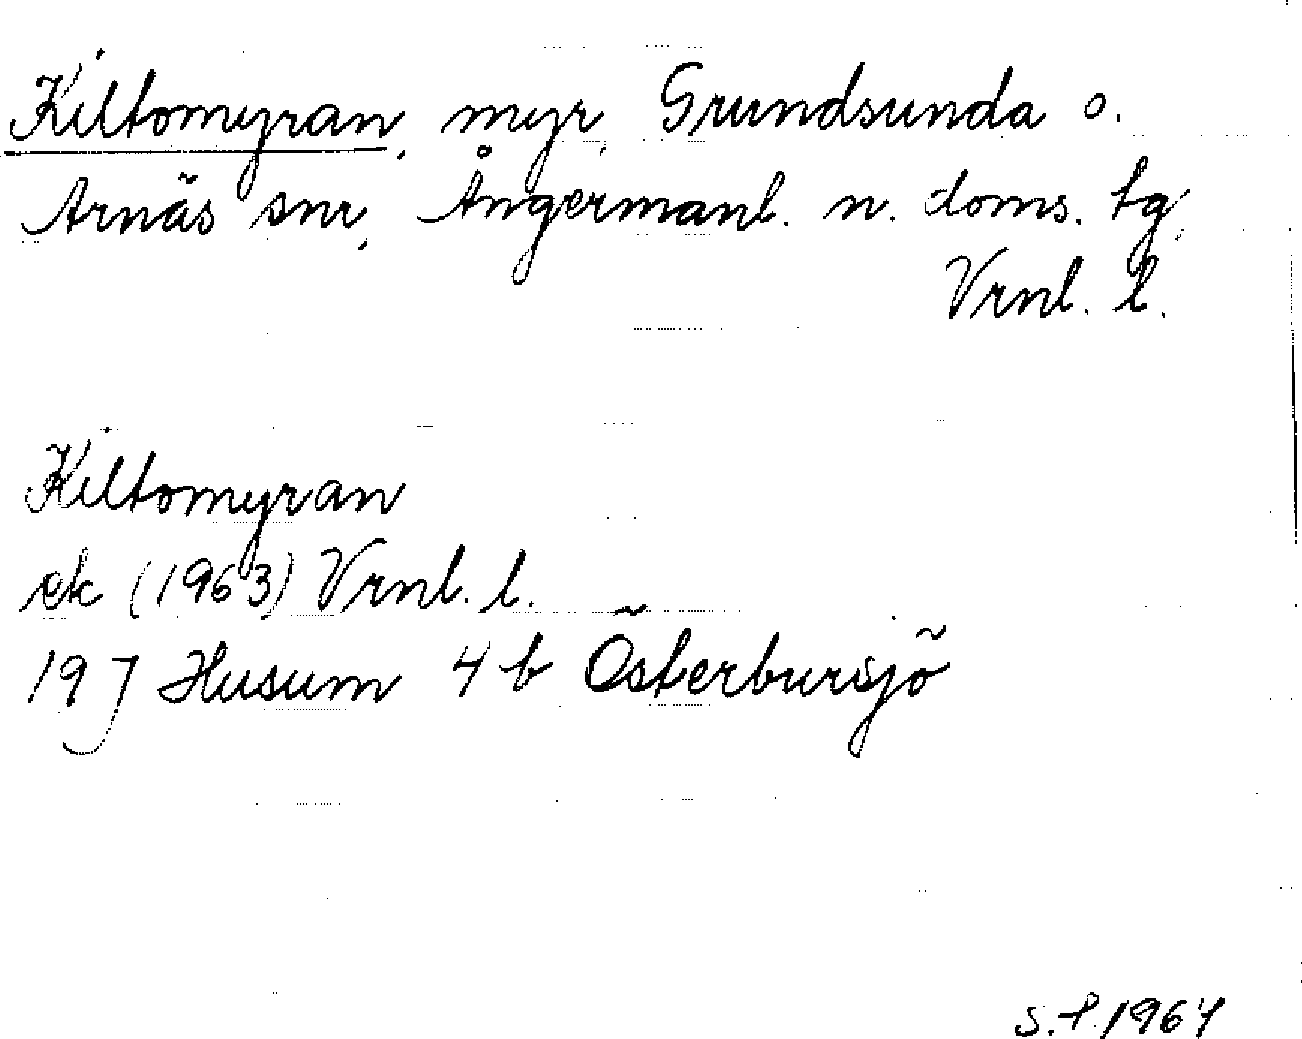 Kiltomyran, myr, Grundsunda o.
Arnäs snr, Ångermanl. n. doms. tg,
Vrnl. l.
Kiltomyran
ek (1963) Vrnl. l.
19 J Husum 4 b Österbursjö
S.F. 1967